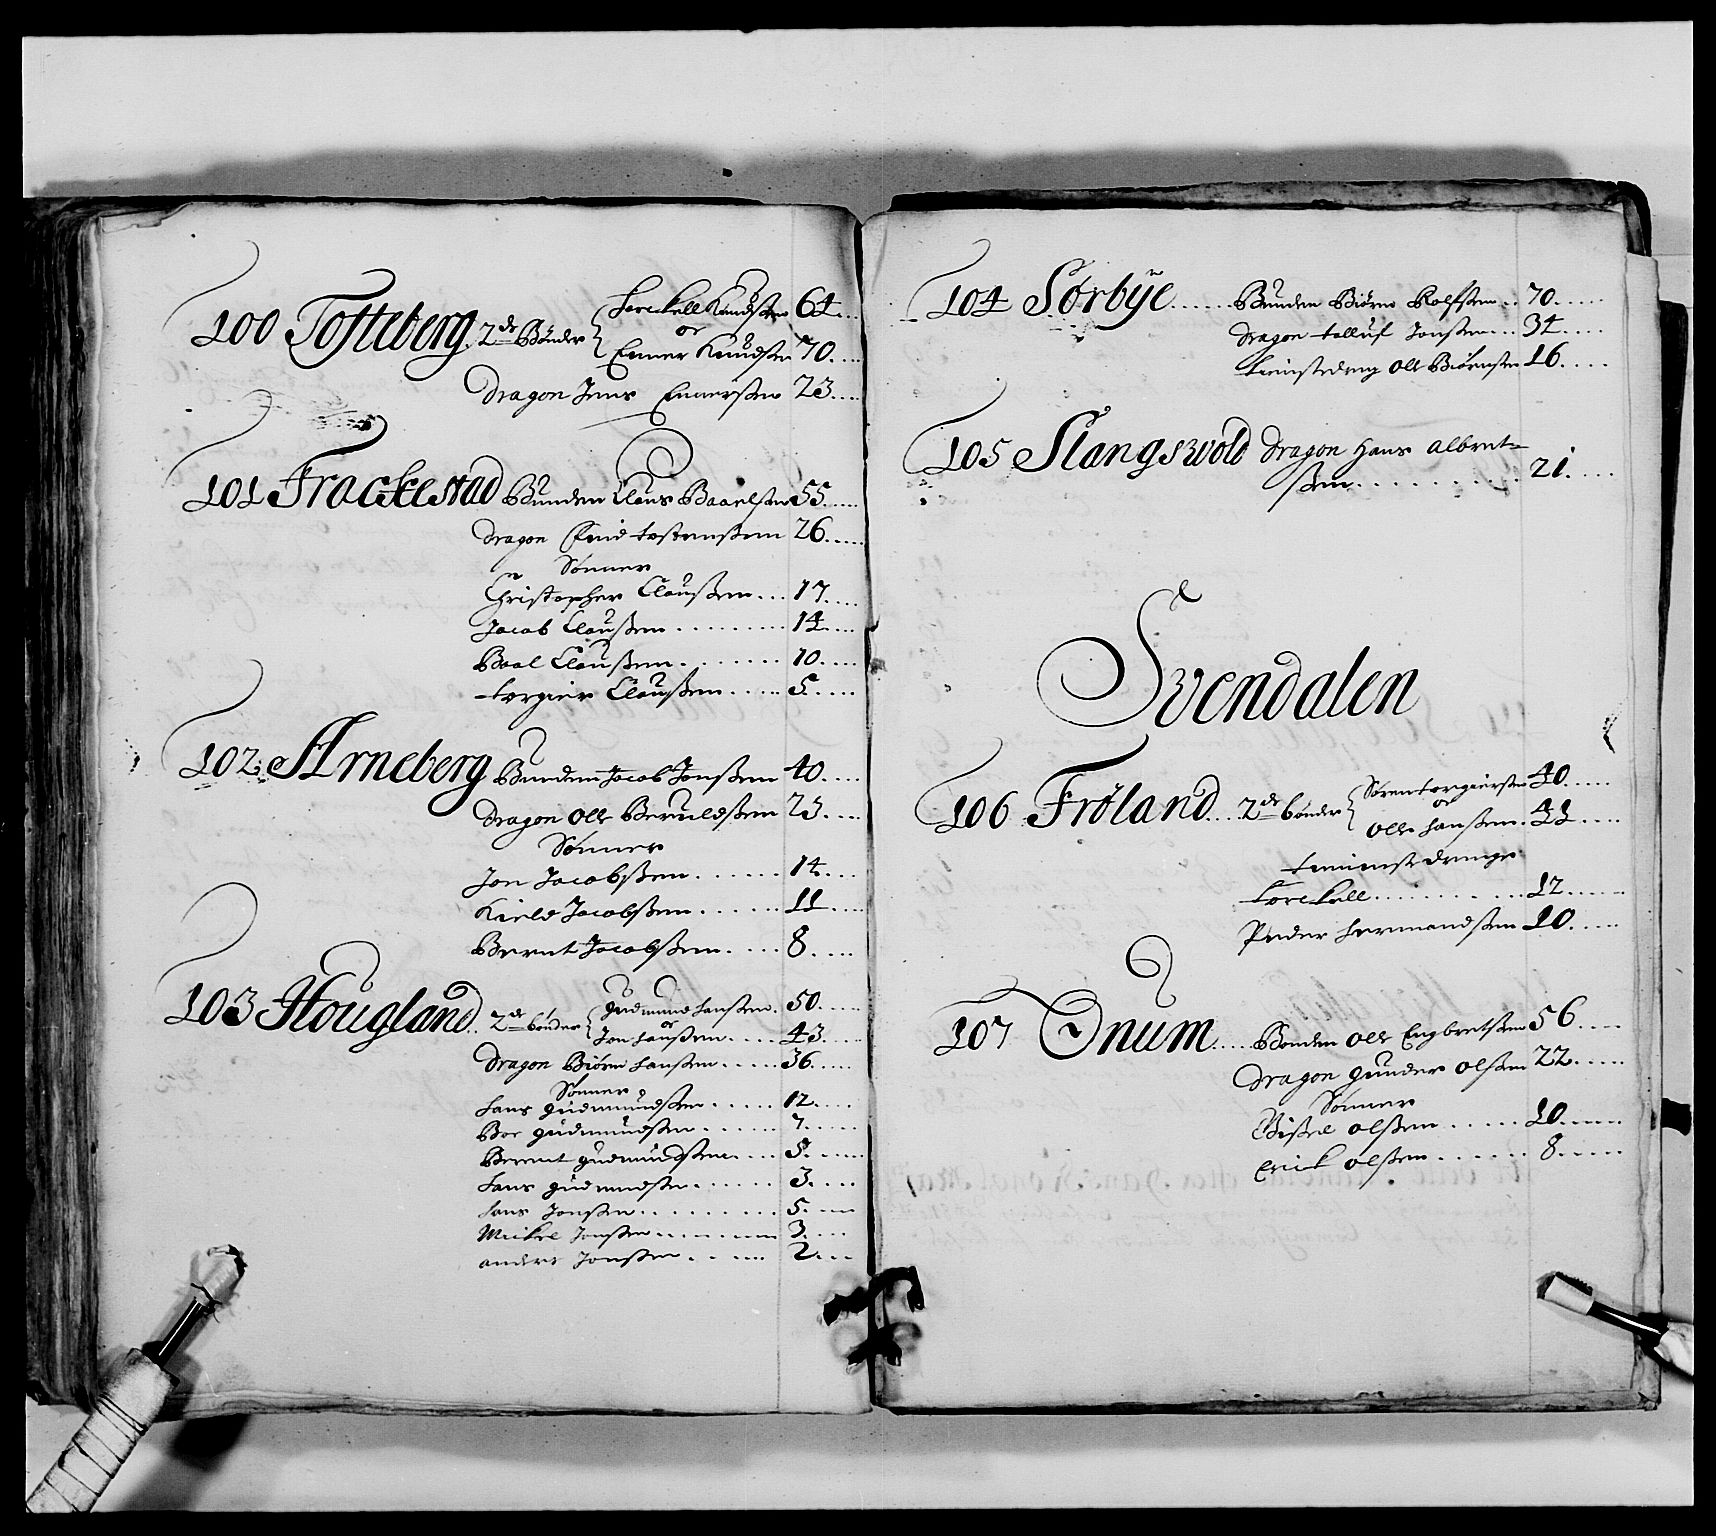 100 Tofteberg 2de Bønder { Torckell Knudsen 64
or
Enner Knudsen 70
Dragon Jens Ennersßen 23
101 Frackestad Bunden Claus Baarelsen 55
Dragon Efvid tostensßen 26
Sønner
Christopher Claußen 17
Jacob Claußen 14
Baal Claußen 10
torgier Claußen 5
102 Arneberg Bunden Jacob Jonßen 40
Dragon Olle Beruldßen 23
Sønner
Jon Jacobßen 14
Kield Jacobßen 11
Bernt Jacobßen 8
103 Hougland 2de bønder { gudmund hanßen 50
or
Jon hanßen 43
Dragon Biørn hanßen 36
Sønner
Hans gudmundßen 12
Boe gudmundßen 7
Berent gudmundßen 5
Hans gudmundßen 3
hans Jonßen 5
Mickel Jonßen 3
anders Jonßen 2
104 Sørbÿe Bunden Biørn Rolfßen 70
Dragon tolluf Jonßen 34
tienistedreng Olle Biørnsen 16
105 Slangswold Dragon Hans albret=
ßen 21
Svendalen
106 Frøland 2de bønder { Søren torgiersen 40
or
Olle hanßen 41
tienistedrenge
torckell 12
Peder hermandßen 10
107 Onum Bonden Olle Engbretßen 56
Dragon gunder olßen 22
Sønner
Nißel olßen 10
Erick olßen 8